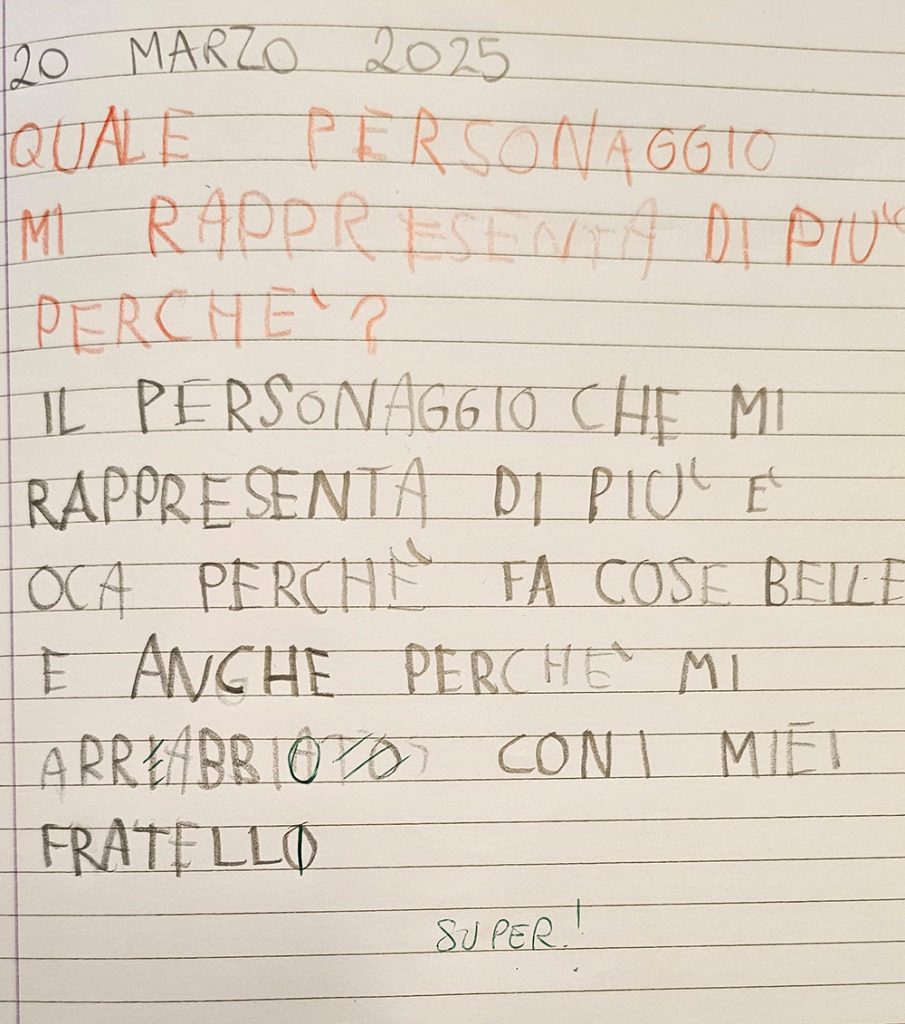 20 MARZO 2025
QUALE PERSONAGGIO
MI RAPPRESENTA DI PIU'
PERCHE'?
IL PERSONAGGIO CHE MI
RAPPRESENTA DI PIU' E'
OCA PERCHE' FA COSE BELLE
E ANCHE PERCHE' MI
ARRABBIO CON I MIEI
FRATELLI
SUPER!